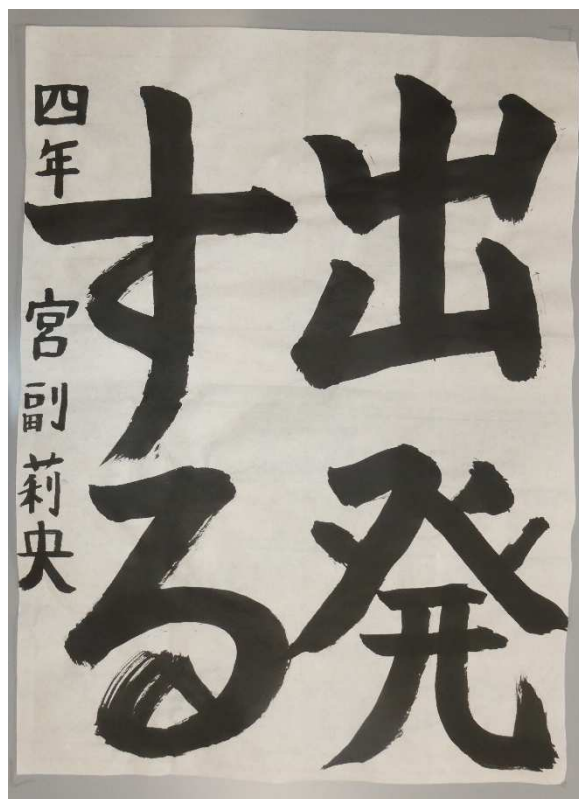 出発
する
四年 宮副莉央